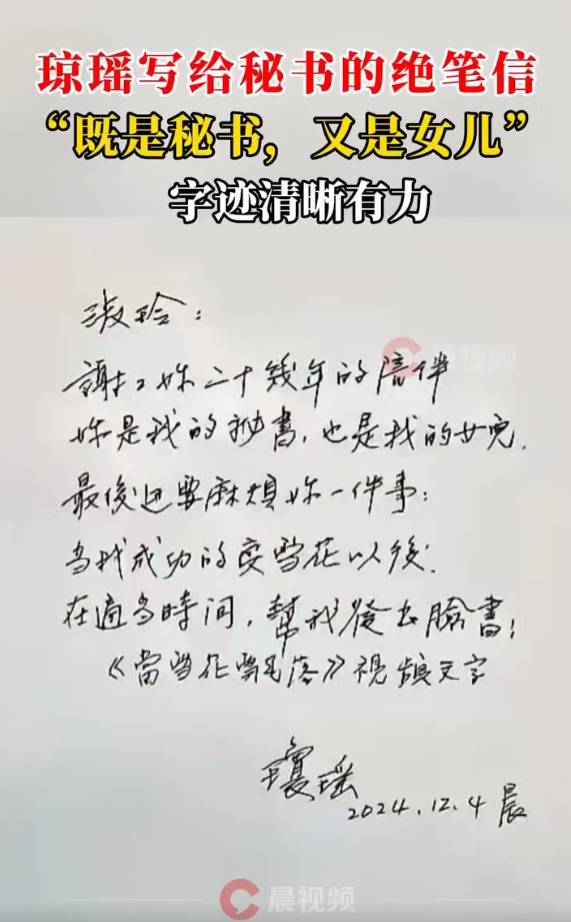 琼瑶写给秘书的绝笔信
“既是秘书，又是女儿”
字迹清晰有力
淑玲：
晨视频
謝謝妳二十幾年的陪伴
妳是我的秘書，也是我的女兒.
最後还要麻煩妳一件事：
当我成功的变雪花以後.
在適当時间，幫我發出臉書：
《當雪花飄落》視頻文字
瓊瑤
2024.12.4晨
晨视频